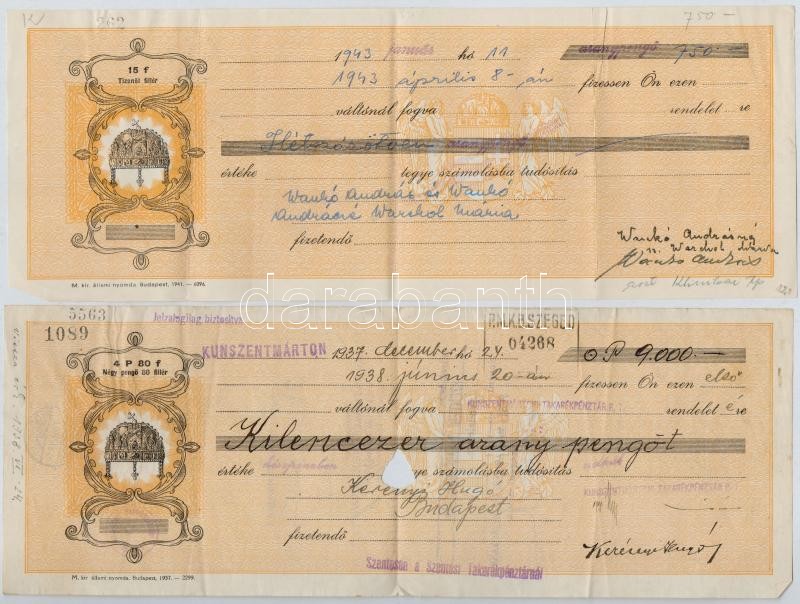 262
750 —
15 f
Tizenöt fillér
1943 január hó 11
aranypengő 750 —
1943 április 8-án fizessen Ön ezen
váltónál fogva rendelet re
Hétszázötven aranypengő
értéke tegye számolásba tudósítás
Wankó András és Wankó
Andrásné Warchol Mária
fizetendő
Wankó Andrásné
Warchol Mária
Wankó András
M. kir. állami nyomda. Budapest, 1941. — 6294.
darabanth
5563
1089
Jelzálogilag biztosítva
KUNSZENTMÁRTON
P.M.K.B. SZEGED
04268
4 P 80 f
Négy pengő 80 fillér
1937. december hó 24.
P 9.000.—
1938. junius 20-án fizessen Ön ezen első
váltónál fogva KUNSZENTMÁRTONI TAKARÉKPÉNZTÁR rendelet é re
Kilencezer arany pengőt
értéke készpénzben tegye számolásba tudósítás
KUNSZENTMÁRTONI TAKARÉKPÉNZTÁR
Kerényi Hugó
Budapest
fizetendő
Kerényi Hugó
Szentesen a Szentesi Takarékpénztárnál
M. kir. állami nyomda. Budapest, 1937. — 2299.